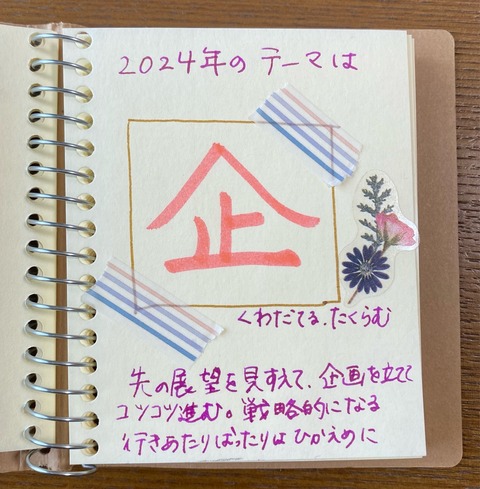 2024年のテーマは
企
くわだてる.たくらむ
先の展望を見すえて、企画を立てて
コツコツ進む。戦略的になる
行きあたりばったりはひかえめに